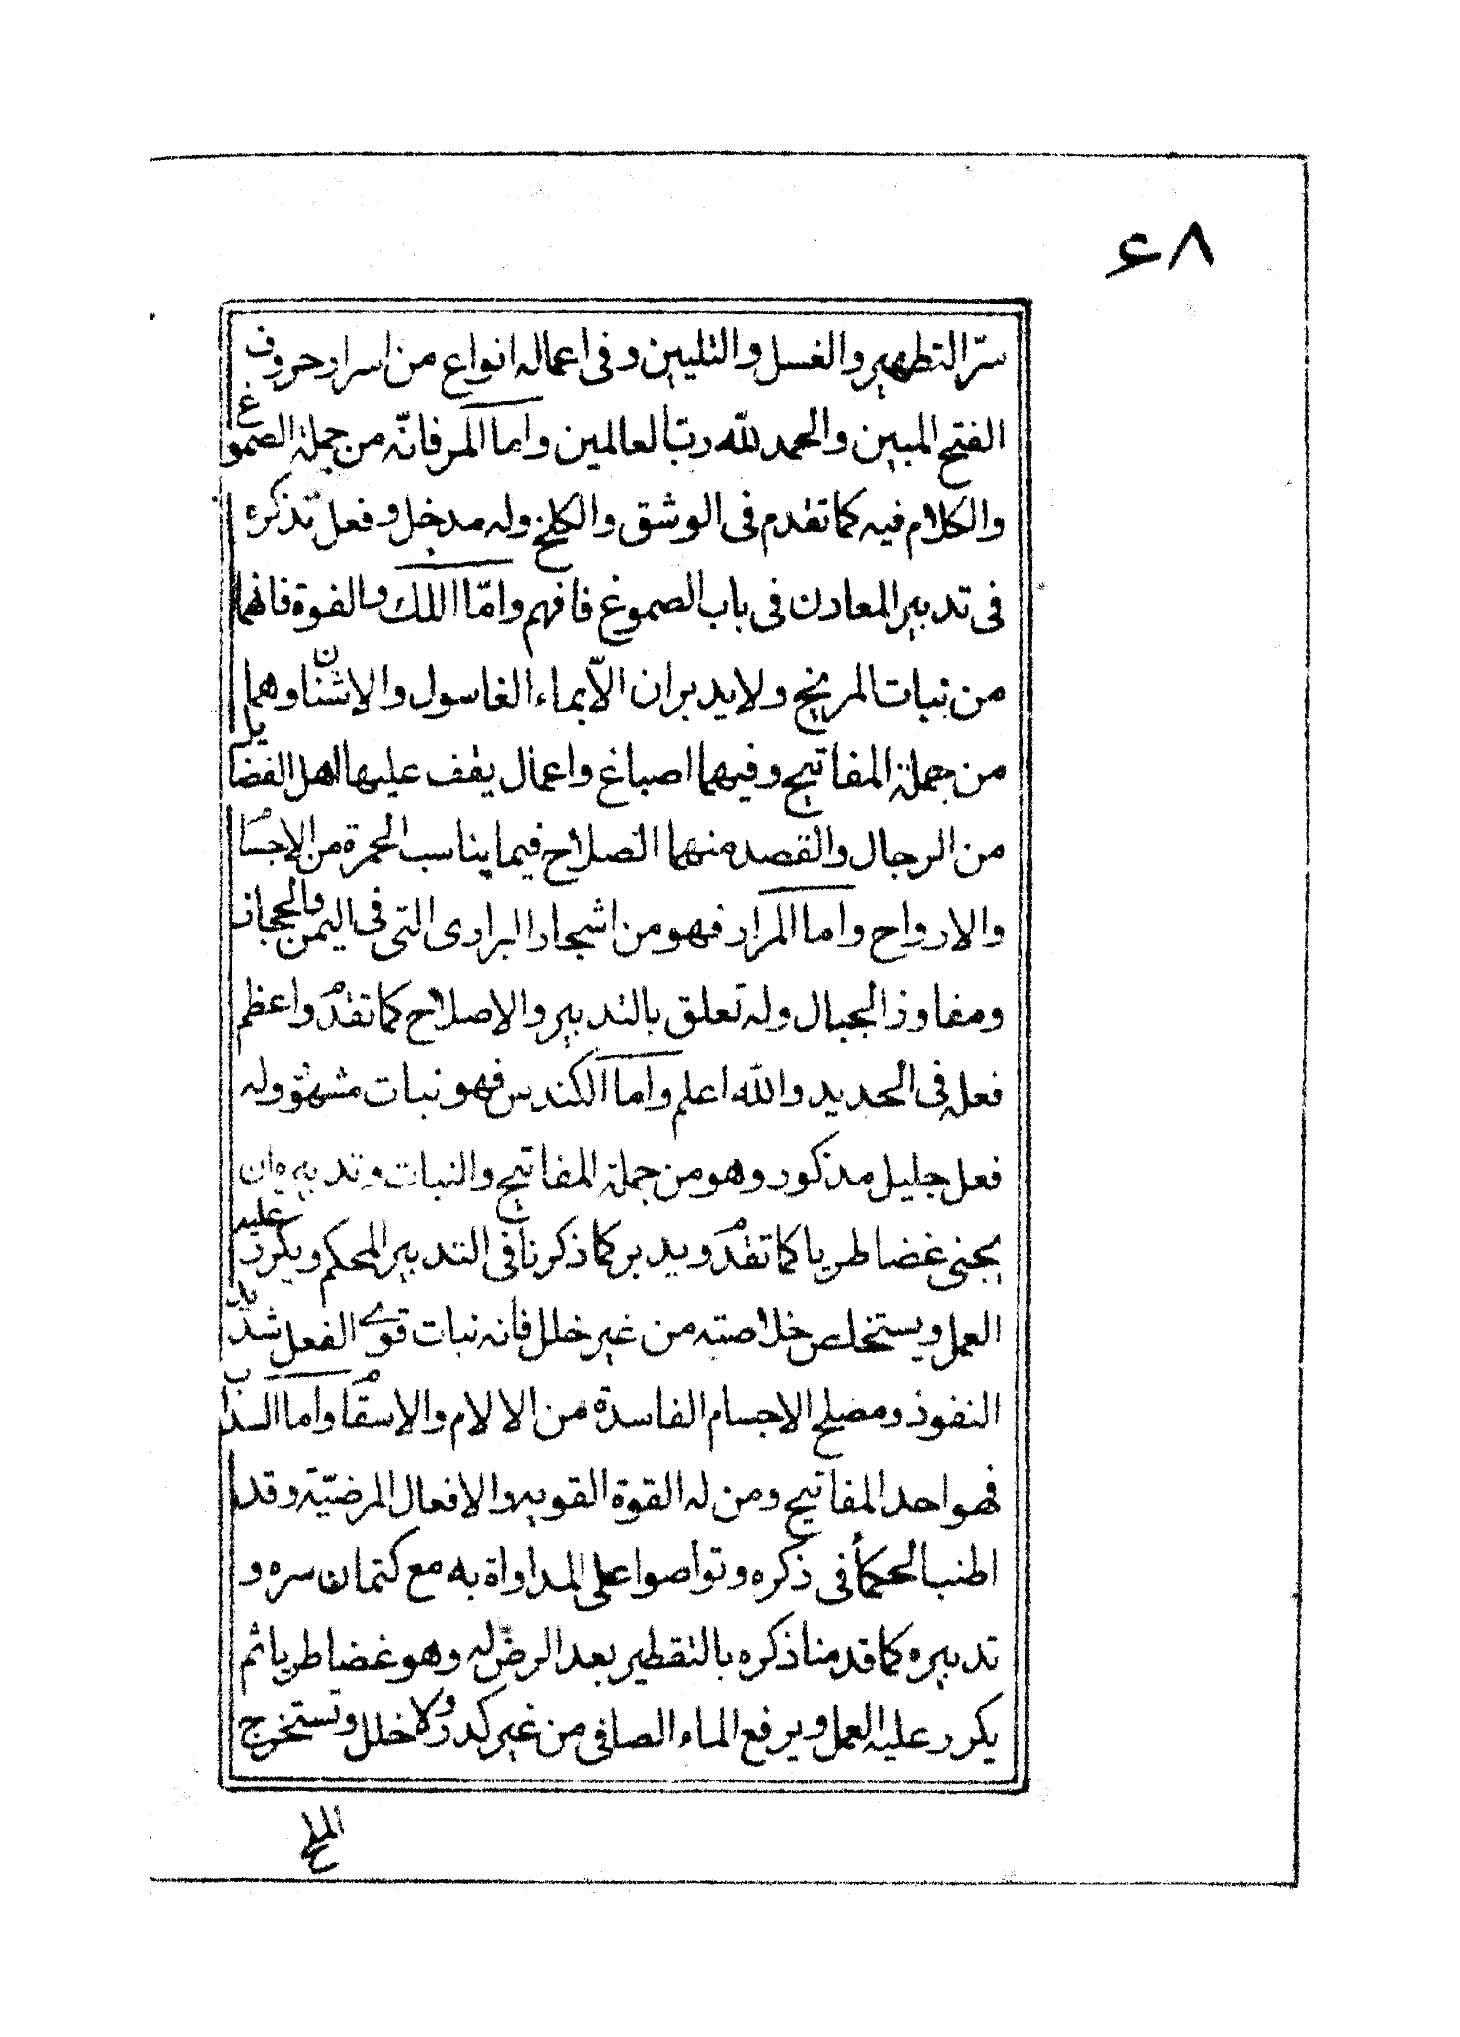 ۶۸
سرّ التطهير والغسل والتليين وفى اعماله انواع من اسرار حروف
الفتح المبين والحمد للّه ربّ العالمين واما المر فانّه من جملة الصموغ
والكلام فيه كما تقدم فى الوشق والكلخ وله مدخل وفعل تذكره
فى تدبير المعادن فى باب الصموغ فافهم وامّا اللك والفوة فانهما
من نبات المريخ ولا يدبران الاّ بماء الغاسول والاشنان وهما
من جملة المفاتيح وفيهما اصباغ واعمال يقف عليها اهل الفضايل
من الرجال والقصد منهما الصلاح فيما يناسب الحمرة من الاجسام
والارواح واما المرار فهو من اشجار البرارى التى فى اليمن والحجاز
ومفاوز الجبال وله تعلق بالتدبير والاصلاح كما تقدم واعظم
فعله فى الحديد واللّه اعلم واما الكندس فهو نبات مشهور وله
فعل جليل مذكور وهو من جملة المفاتيح والنبات وتدبيره ان
يجنى غضا طريا كما تقدم ويدبر كما ذكرنا فى التدبير المحكم ويكرر عليه
العمل ويستخلص خلاصته من غير خلل فانه نبات قوى الفعل شديد
النفوذ ومصلح الاجسام الفاسدة من الالام والاسقام واما السذاب
فهو احد المفاتيح ومن له القوة القويه والافعال المرضيّة وقد
اطنب الحكمأ فى ذكره وتواصوا على المداواة به مع كتمان سره و
تدبيره كما قدمنا ذكره بالتقطير بعد الرضّ له وهو غضا طريا ثم
يكرر عليه العمل ويرفع الماء الصافى من غير كدر ولا خلل وتستخرج
الملح